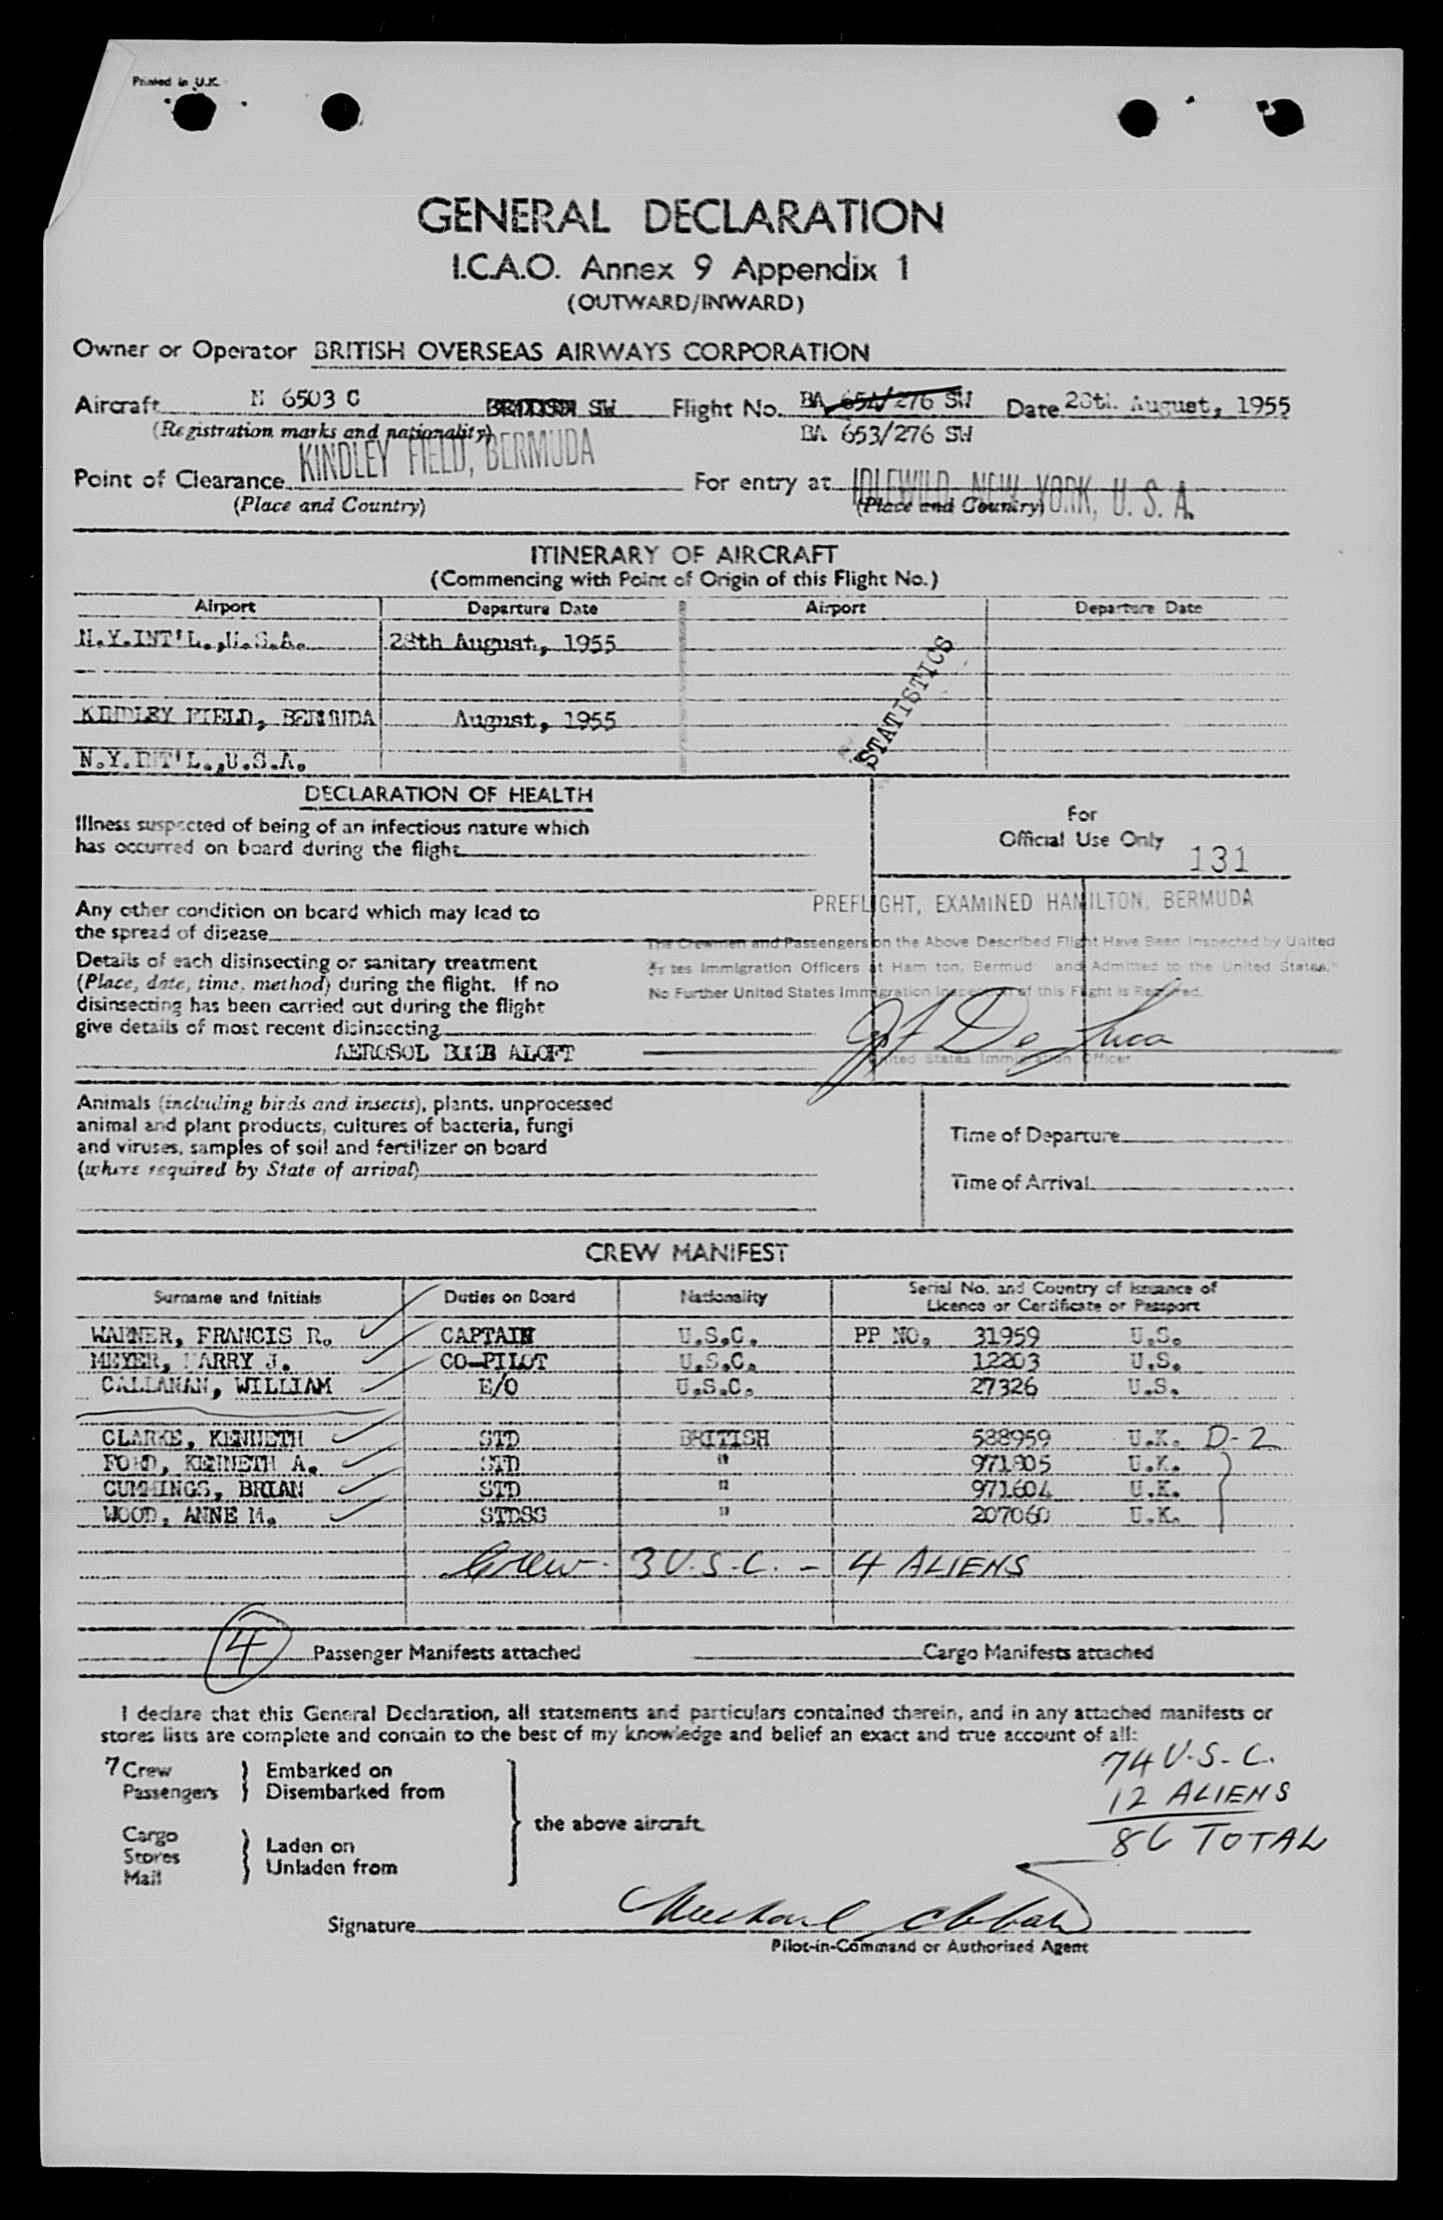 Printed in U.K.
GENERAL DECLARATION
I.C.A.O. Annex 9 Appendix 1
(OUTWARD/INWARD)
Owner or Operator BRITISH OVERSEAS AIRWAYS CORPORATION
Aircraft N 6503 C SW Flight No. BA 654/276 SW Date 28th August, 1955
(Registration marks and nationality) BA 653/276 SW
Point of Clearance KINDLEY FIELD, BERMUDA For entry at IDLEWILD NEW YORK, U. S. A.
(Place and Country) (Place and Country)
ITINERARY OF AIRCRAFT
(Commencing with Point of Origin of this Flight No.)
Airport Departure Date Airport Departure Date
N.Y.INT'L.,U.S.A. 28th August, 1955
STATISTICS
KINDLEY FIELD, BERMUDA August, 1955
N.Y.INT'L.,U.S.A.
DECLARATION OF HEALTH
Illness suspected of being of an infectious nature which
has occurred on board during the flight
For
Official Use Only 131
PREFLIGHT, EXAMINED HAMILTON, BERMUDA
Any other condition on board which may lead to
the spread of disease
The Crewmen and Passengers on the Above Described Flight Have Been Inspected by United
States Immigration Officers at Hamilton, Bermuda and Admitted to the United States.
No Further United States Immigration Inspection of this Flight is Required.
Details of each disinsecting or sanitary treatment
(Place, date, time, method) during the flight. If no
disinsecting has been carried out during the flight
give details of most recent disinsecting
AEROSOL BOMB ALOFT
De Luca
United States Immigration Officer
Animals (including birds and insects), plants, unprocessed
animal and plant products, cultures of bacteria, fungi
and viruses, samples of soil and fertilizer on board
(where required by State of arrival)
Time of Departure
Time of Arrival
CREW MANIFEST
Surname and Initials Duties on Board Nationality Serial No. and Country of Issuance of
Licence or Certificate or Passport
WARNER, FRANCIS R. CAPTAIN U.S.C. PP NO. 31959 U.S.
MEYER, HARRY J. CO-PILOT U.S.C. 12203 U.S.
CALLANAN, WILLIAM E/O U.S.C. 27326 U.S.
CLARKE, KENNETH STD BRITISH 588959 U.K. D-2
FORD, KENNETH A. STD " 971805 U.K.
CUMMINGS, BRIAN STD " 971604 U.K.
WOOD, ANNE M. STDSS " 207060 U.K.
Crew - 3 U.S.C. - 4 ALIENS
4 Passenger Manifests attached Cargo Manifests attached
I declare that this General Declaration, all statements and particulars contained therein, and in any attached manifests or
stores lists are complete and contain to the best of my knowledge and belief an exact and true account of all:
7 Crew Embarked on
Passengers Disembarked from
the above aircraft.
Cargo
Stores Laden on
Mail Unladen from
74 U.S.C.
12 ALIENS
86 TOTAL
Signature
Pilot-in-Command or Authorised Agent